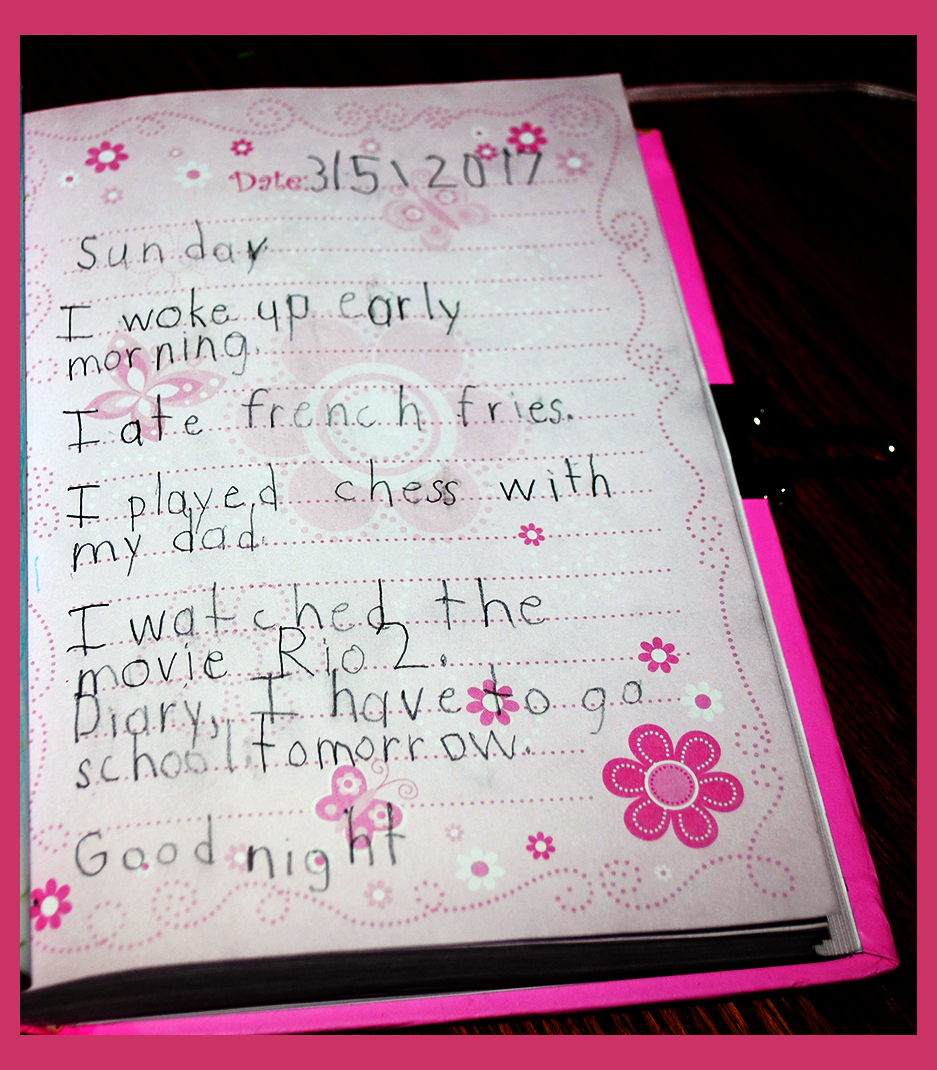 Date: 3/5\2017
Sunday
I woke up early
morning.
I ate french fries.
I played chess with
my dad.
I watched the
movie Rio 2.
Diary, I have to go
school tomorrow.
Good night